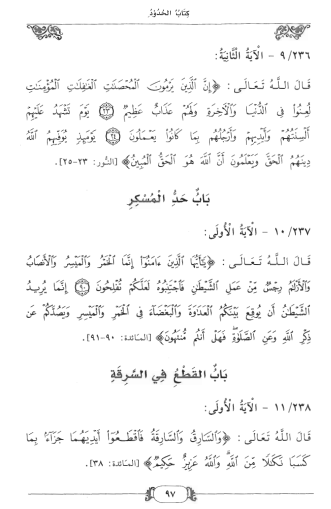 كِتَابُ الحُدُودِ
٩/٢٣٦ - الْآيَةُ الثَّانِيَةُ:
قَالَ اللَّهُ تَعَالَى: ﴿إِنَّ الَّذِينَ يَرْمُونَ الْمُحْصَنَاتِ الْغَافِلَاتِ الْمُؤْمِنَاتِ
لُعِنُوا فِي الدُّنْيَا وَالْآخِرَةِ وَلَهُمْ عَذَابٌ عَظِيمٌ ۝٢٣ يَوْمَ تَشْهَدُ عَلَيْهِمْ
أَلْسِنَتُهُمْ وَأَيْدِيهِمْ وَأَرْجُلُهُم بِمَا كَانُوا يَعْمَلُونَ ۝٢٤ يَوْمَئِذٍ يُوَفِّيهِمُ اللَّهُ
دِينَهُمُ الْحَقَّ وَيَعْلَمُونَ أَنَّ اللَّهَ هُوَ الْحَقُّ الْمُبِينُ﴾ [النُّور: ٢٣-٢٥].
بَابُ حَدِّ الْمُسْكِرِ
١٠/٢٣٧ - الْآيَةُ الْأُولَى:
قَالَ اللَّهُ تَعَالَى: ﴿يَا أَيُّهَا الَّذِينَ ءَامَنُوا إِنَّمَا الْخَمْرُ وَالْمَيْسِرُ وَالْأَنصَابُ
وَالْأَزْلَامُ رِجْسٌ مِّنْ عَمَلِ الشَّيْطَانِ فَاجْتَنِبُوهُ لَعَلَّكُمْ تُفْلِحُونَ ۝٩٠ إِنَّمَا يُرِيدُ
الشَّيْطَانُ أَن يُوقِعَ بَيْنَكُمُ الْعَدَاوَةَ وَالْبَغْضَاءَ فِي الْخَمْرِ وَالْمَيْسِرِ وَيَصُدَّكُمْ عَن
ذِكْرِ اللَّهِ وَعَنِ الصَّلَاةِ فَهَلْ أَنتُم مُّنتَهُونَ﴾ [المائدة: ٩٠-٩١].
بَابُ القَطْعِ فِي السَّرِقَةِ
١١/٢٣٨ - الْآيَةُ الْأُولَى:
قَالَ اللَّهُ تَعَالَى: ﴿وَالسَّارِقُ وَالسَّارِقَةُ فَاقْطَعُوا أَيْدِيَهُمَا جَزَاءً بِمَا
كَسَبَا نَكَالًا مِّنَ اللَّهِ وَاللَّهُ عَزِيزٌ حَكِيمٌ﴾ [المائدة: ٣٨].
٩٧